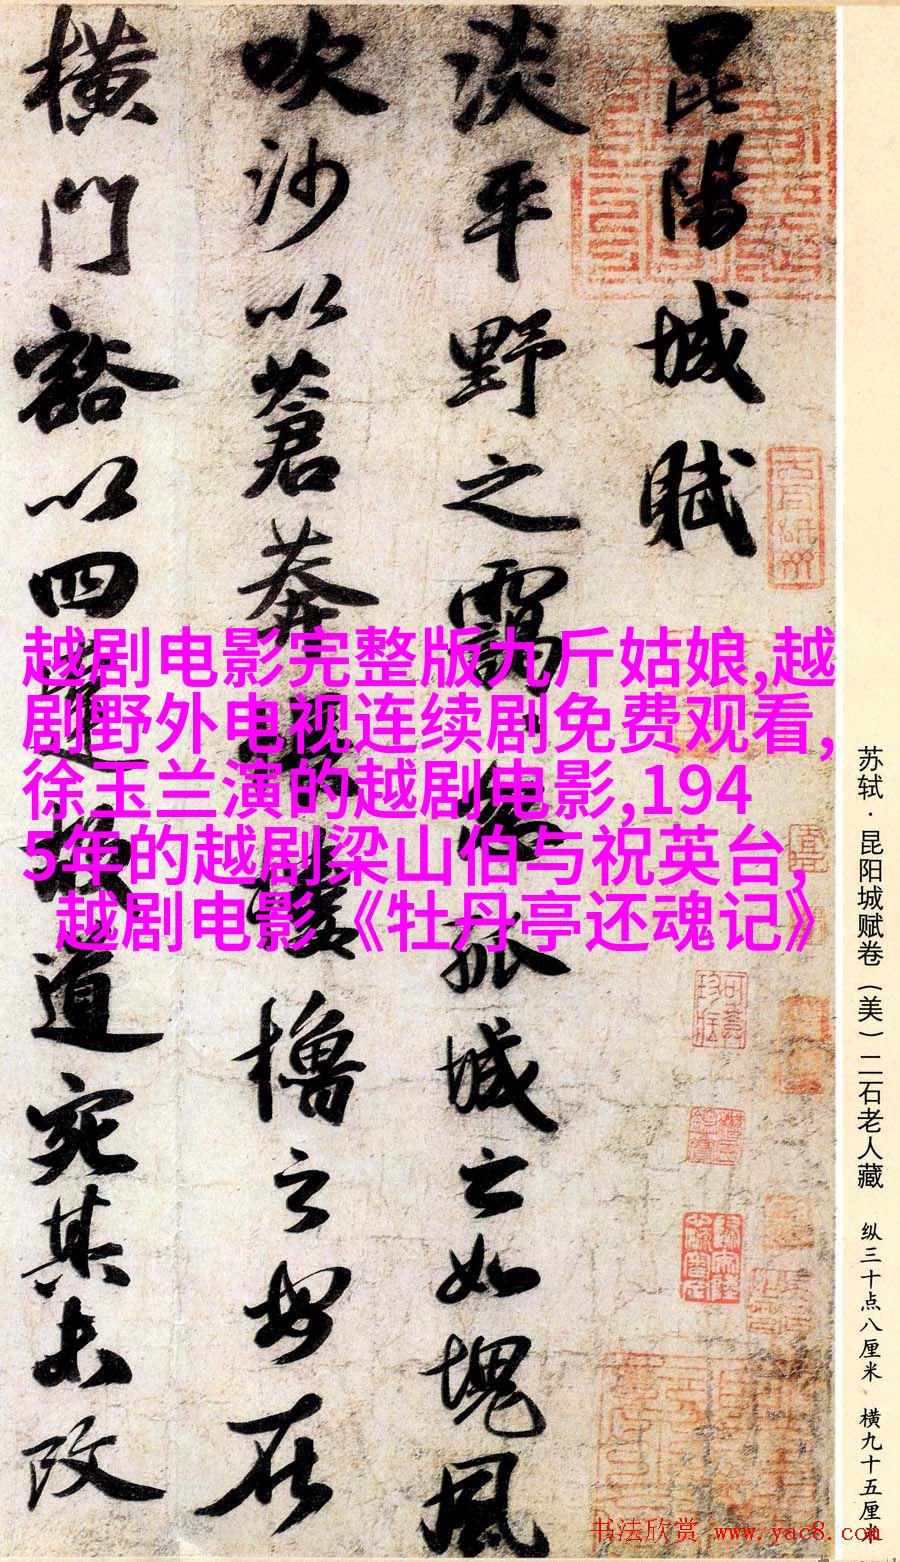 昆陽城賦
淡平野之靄孤城之如塊風
吹沙以蒼莽樓櫓之安在
橫門豁以四達故道宛其未改
越剧电影完整版九斤姑娘,越
剧野外电视连续剧免费观看,
徐玉兰演的越剧电影,194
5年的越剧梁山伯与祝英台,
越剧电影《牡丹亭还魂记》
苏轼·昆阳城赋卷（美）二石老人藏 纵三十点八厘米 横九十五厘米
书法欣赏 www.yac8.com